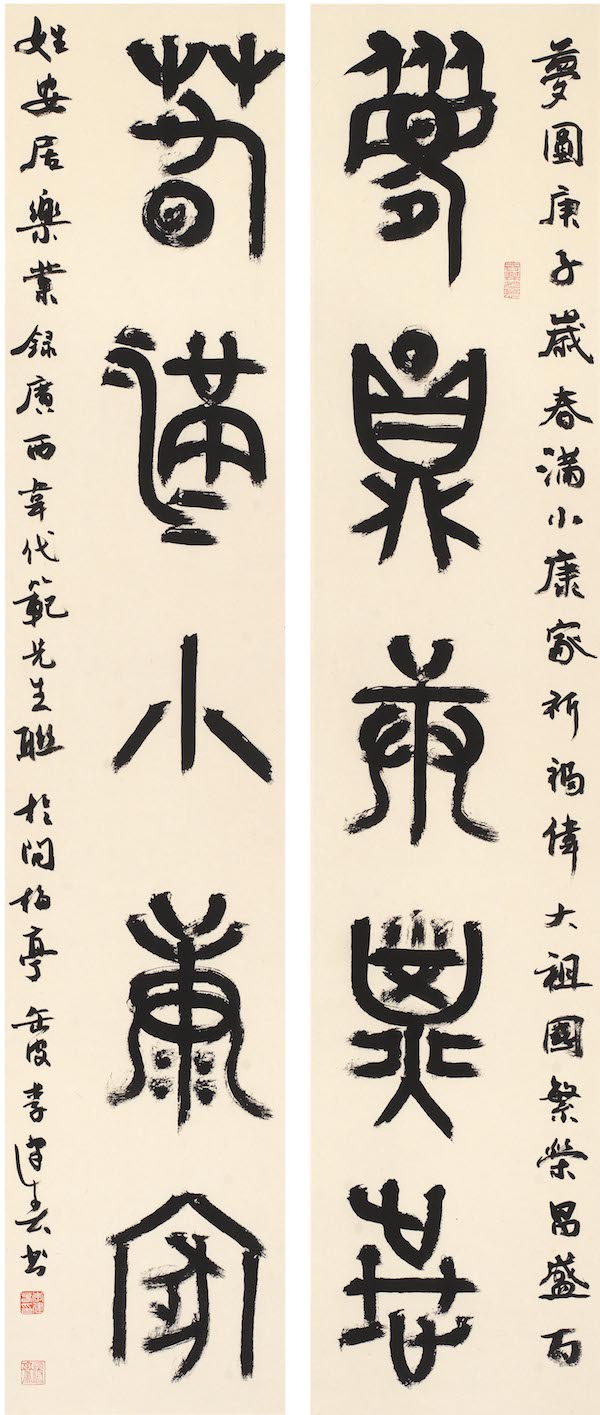 夢圓庚子歲春滿小康家祈福偉大祖國繁榮昌盛百
夢圓庚子歲
春滿小康家
姓安居樂業録廣西韋代範先生聯 於 梅亭 李 書